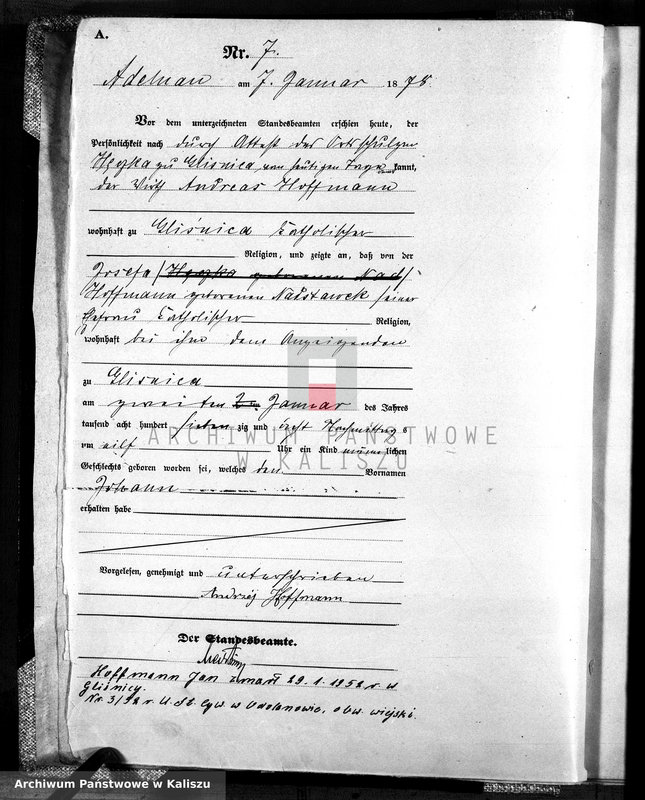 A.
Nr. 7.
Adelnau am 7. Januar 1878.
Vor dem unterzeichneten Standesbeamten erschien heute, der
Persönlichkeit nach durch Attest des Ortsschulzen
zu Glisnica, vom heutigen Tage kannt,
der Wirth Andreas Hoffmann
wohnhaft zu Gliśnica katholischer
Religion, und zeigte an, daß von der
Josefa
Hoffmann geborenen seiner
Ehefrau katholischer Religion,
wohnhaft bei ihm dem Anzeigenden
zu Glisnica
am zweiten Januar des Jahres
tausend acht hundert sieben zig und acht Nachmittags
um eilf Uhr ein Kind männlichen
Geschlechts geboren worden sei, welches den Vornamen
Johann
erhalten habe
Vorgelesen, genehmigt und unterschrieben
Andrzéj Hoffmann
Der Standesbeamte.
Hoffmann Jan zmarł 29.1.1952 r. w
Gliśnicy.
Nr. 3/52 r. U.St. Cyw. w Odolanowie, obw. wiejski.
ARCHIWUM PAŃSTWOWE
W KALISZU
Archiwum Państwowe w Kaliszu